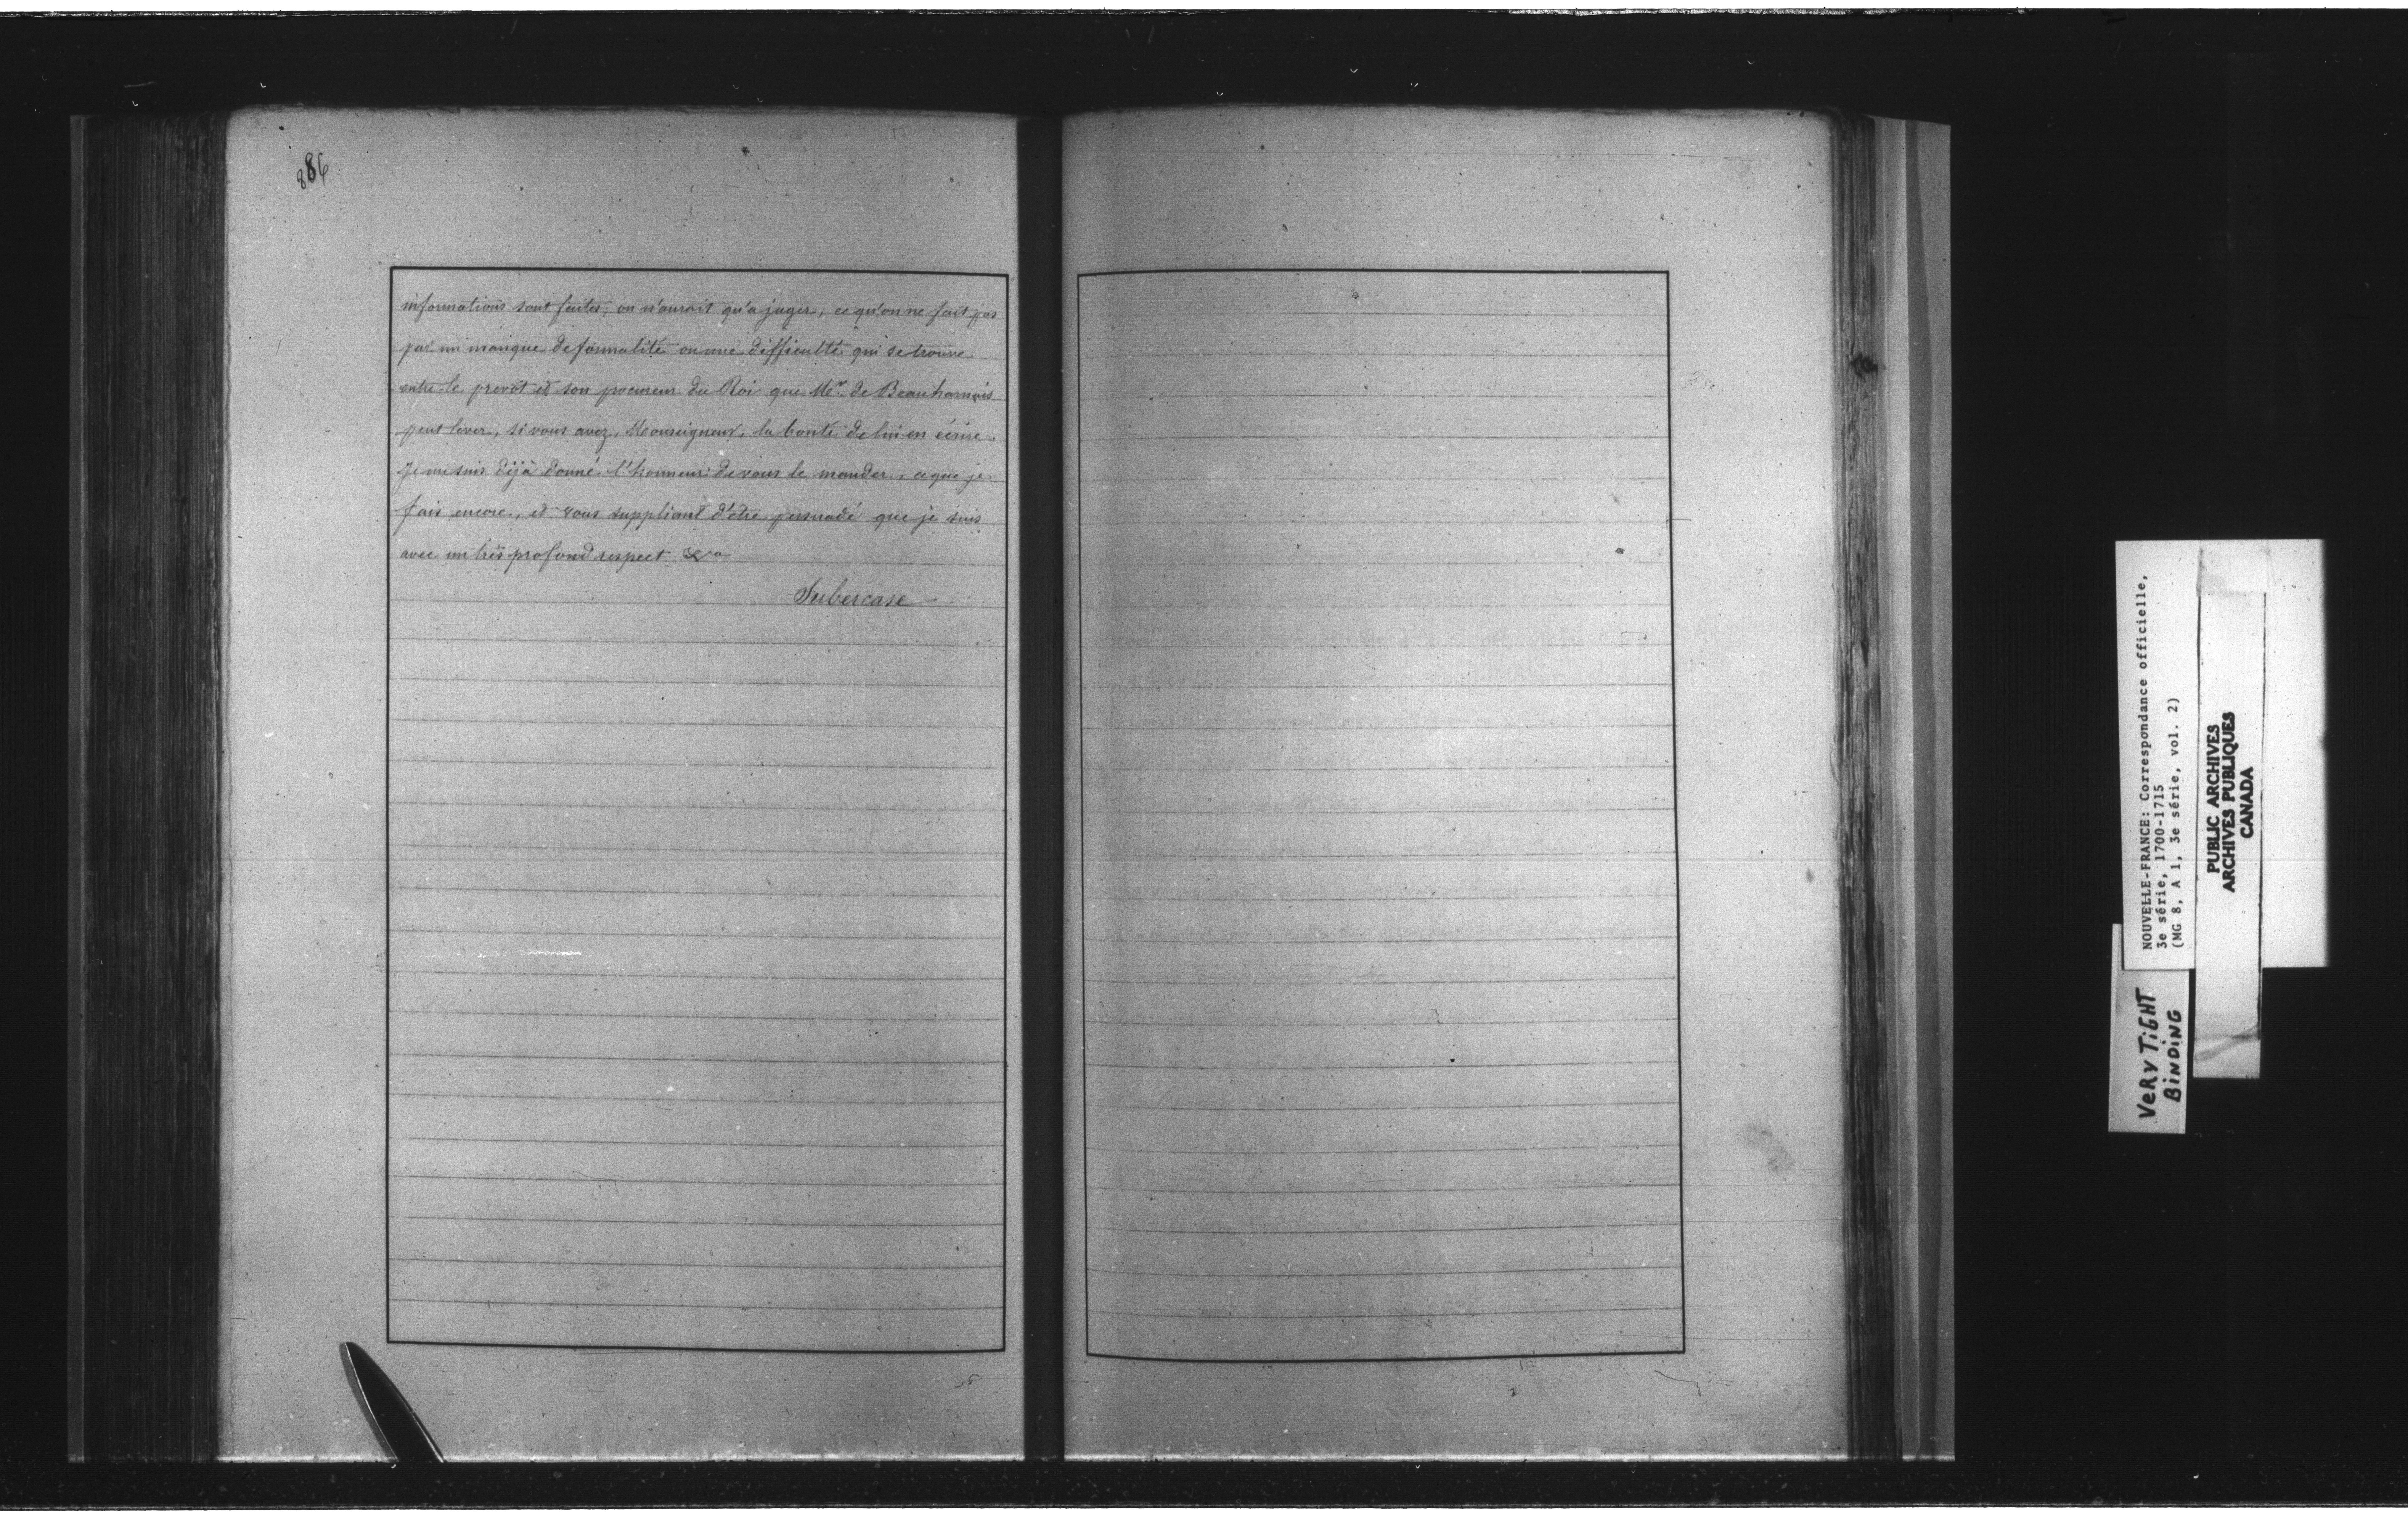 886
informations sont faites, on n'aurait qu'a juger, ce qu'on ne fait pas
par un manque de formalité ou une difficulté qui se trouve
entre le prevôt et son procureur du Roi que Mr. de Beauharnois
peut lever, si vous avez, Monseigneur, la bonté de lui en écrire.
Je me suis déjà donné l'honneur de vous le mander, ce que je
fais encore, et vous suppliant d'être persuadé que je suis
avec un très profond respect &a
Subercase
NOUVELLE-FRANCE: Correspondance officielle,
3e série, 1700-1715
(MG 8, A 1, 3e série, vol. 2)
PUBLIC ARCHIVES
ARCHIVES PUBLIQUES
CANADA
VERY TIGHT
BINDING